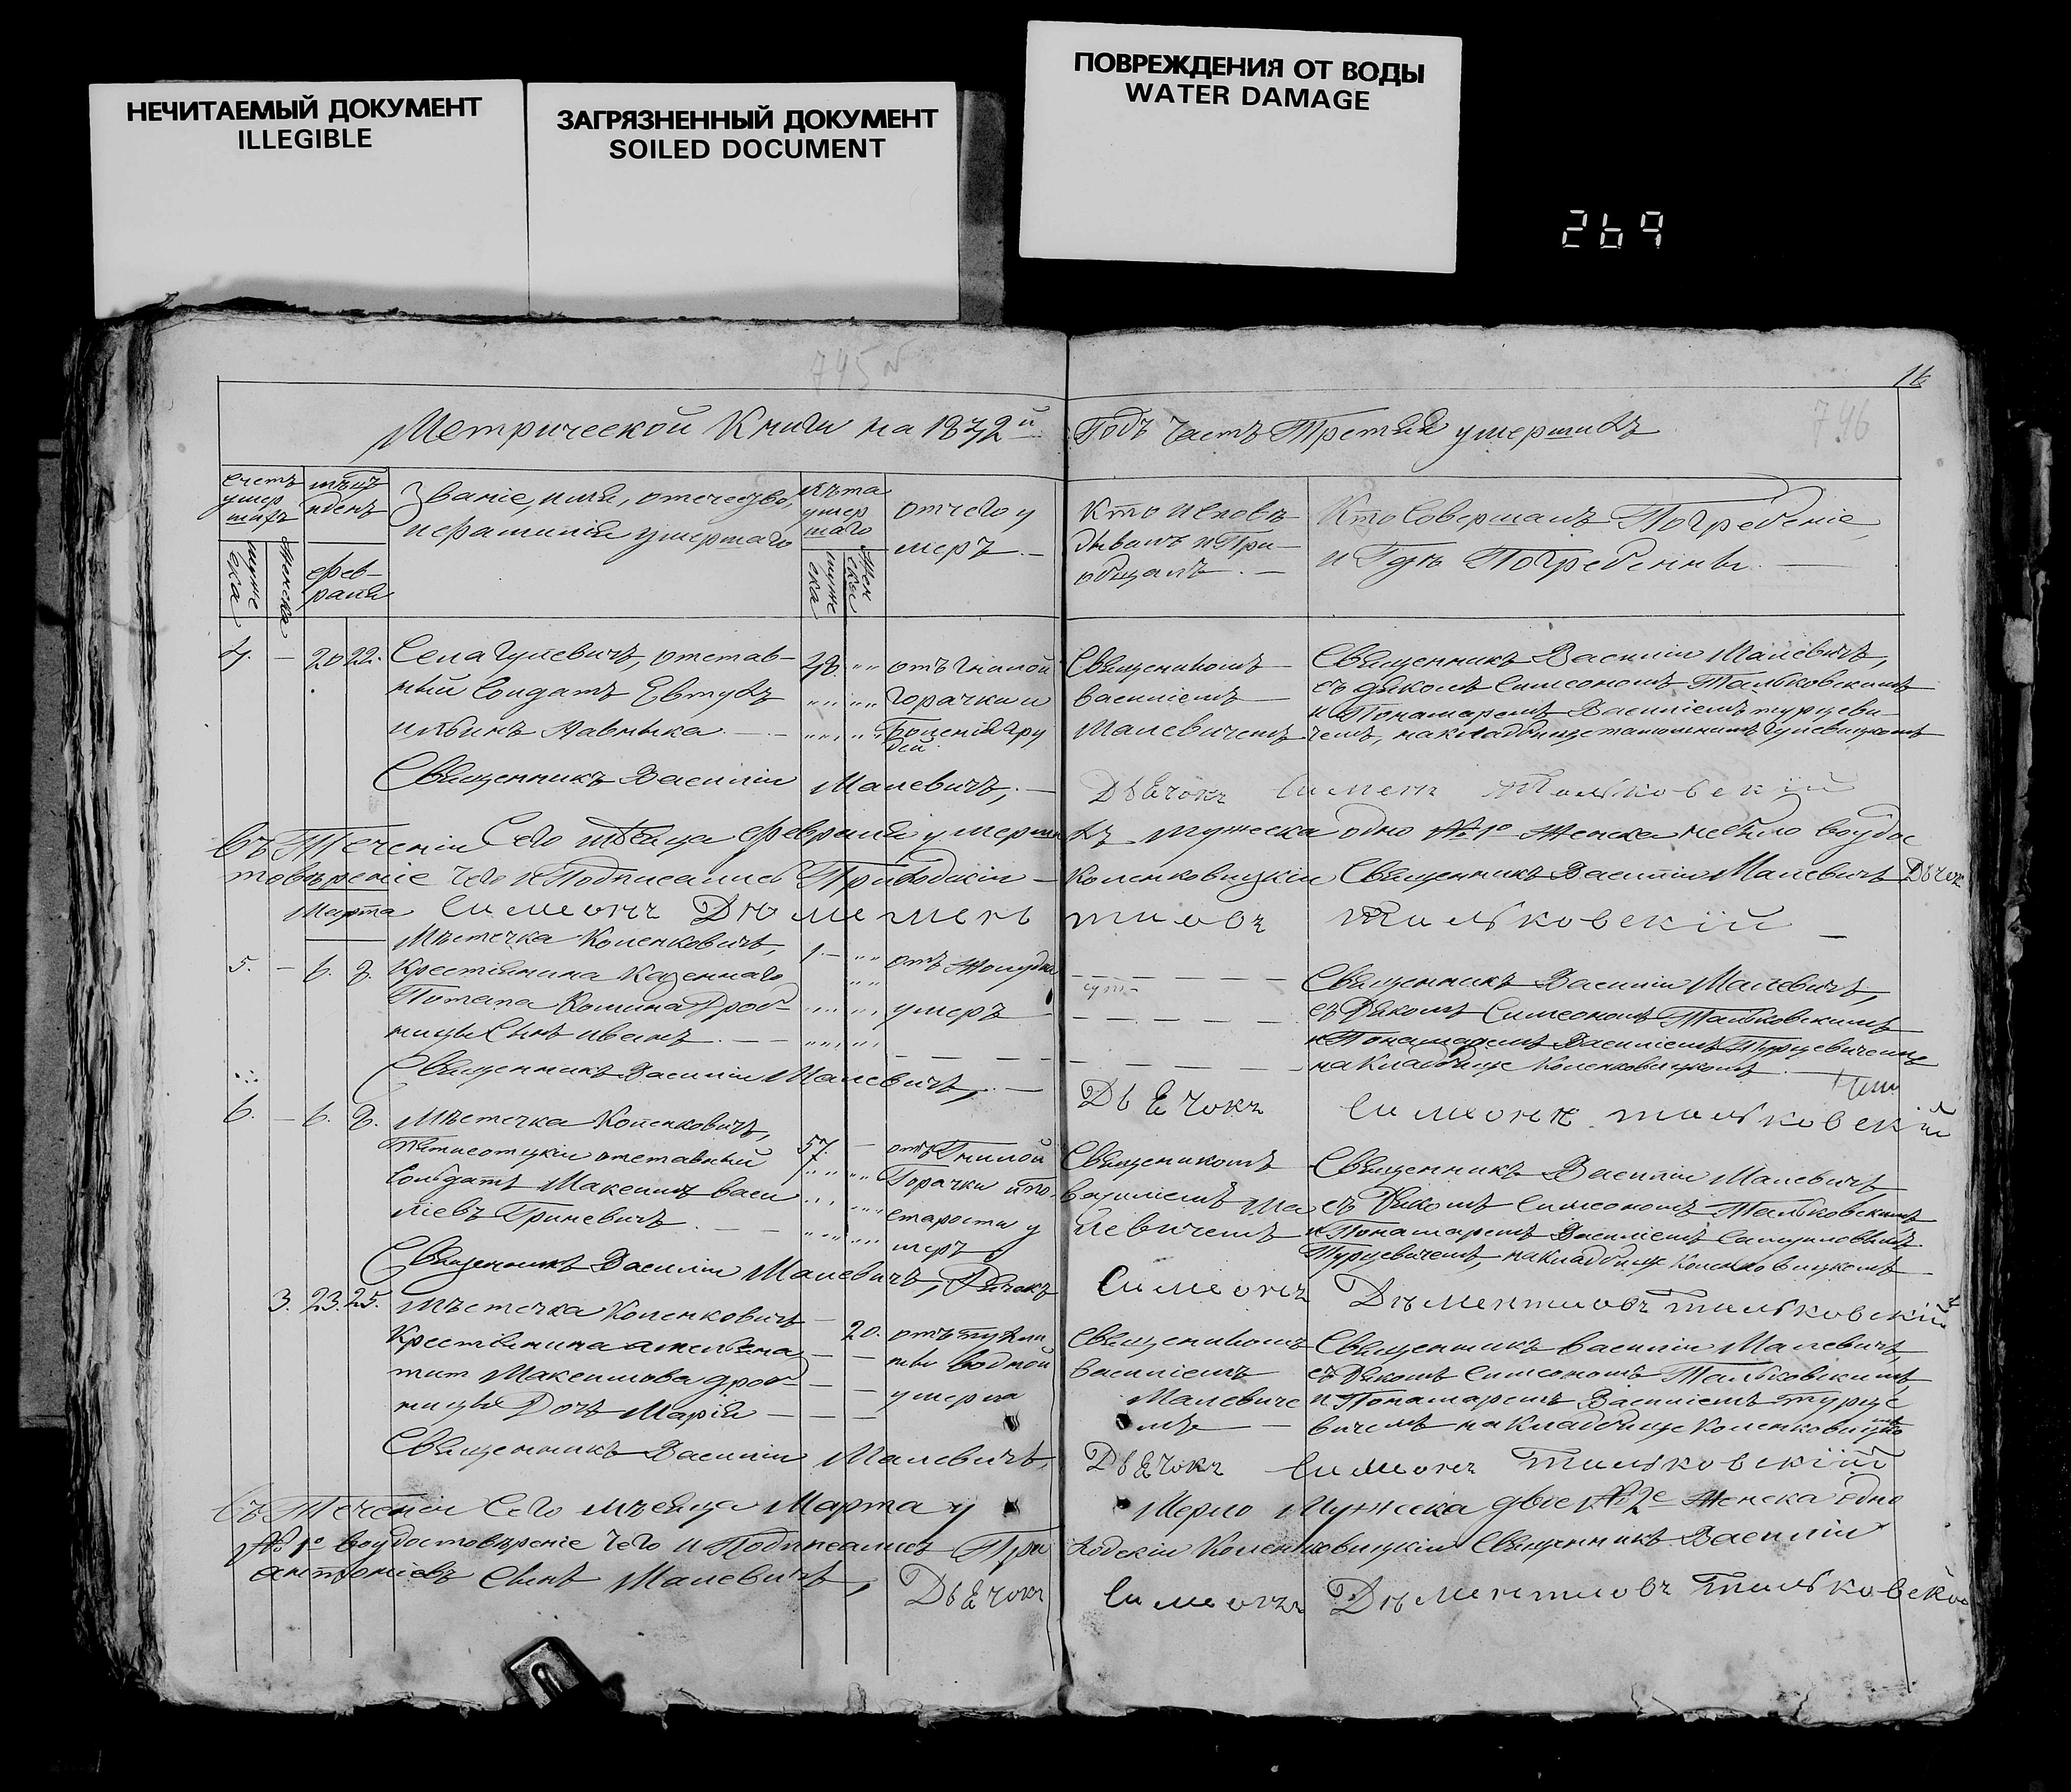 НЕЧИТАЕМЫЙ ДОКУМЕНТ
ILLEGIBLE
ЗАГРЯЗНЕННЫЙ ДОКУМЕНТ
SOILED DOCUMENT
ПОВРЕЖДЕНИЯ ОТ ВОДЫ
WATER DAMAGE
269
745
16
746
Метрической Книги на 1872й Годъ Часть Третья умершихъ
Счетъ умер шихъ
Мужеска
Женска
мѣсяцъ и день
Февраля
Званіе, имя, отечество,
и фамилія умершаго
лѣта умер шаго
муже ска
Жен ска
отчего у
меръ
Кто исповѣ
дывалъ и При
общалъ
Кто Совершалъ Погребеніе,
и Гдѣ Погребенны
4. — 20 22. Села Гулевичъ, отстав-
ный Солдатъ Евтухъ
отъ гнилой
горачки и
Боленія гру
дей
Священикомъ
Василіемъ
Малевичемъ
Священникъ Василій Малевичъ,
съ дякомъ Симеономъ Тальковскимъ
и Понамаремъ Василіемъ турцеви-
чемъ, на кладбище
Священникъ Василій Малевичъ, Дьячокъ Симеонъ Тальковскій
Въ Теченіи Сего мѣсяца Февраля умершихъ мужеска одно № 1е Женска небыло воудос
товѣреніе чего и Подписались Приходскій Копенковицкій Священникъ Василій Малевичъ Дьячок
Марта Симеонъ Дѣментиовъ Тальковскій
5. — 6. 8. Мѣстечка Копенковичъ,
Крестьянина Казеннаго
Потапа
ницы Сынъ Иванъ
1.
отъ
умеръ
Священникъ Василій Малевичъ,
съ Дякомъ Симеономъ Тальковскимъ
и Понамаремъ Василіемъ Турцевичемъ
на Кладбище Копенковицкомъ
Священникъ Василій Малевичъ, Дьячокъ Симеонъ Тальковскій
6. — 6. 8. Мѣстечка Копенковичъ,
отставный
Солдатъ Максимъ Васи
ліевъ Гриневичъ
57.
отъ Гнилой
Горачки и по
старости у
меръ
Священикомъ
Василіемъ Ма
левичемъ
Священникъ Василій Малевичъ
съ Дякомъ Симеономъ Тальковскимъ
и Понамаремъ Василіемъ
Турцевичемъ, на кладбище Копенковицкомъ
Священникъ Василій Малевичъ, Дьячокъ Симеонъ Дѣментиовъ Тальковскій
3. 23. 25. Мѣстечка Копенковичъ
Крестьянина
Максимова
ницы Дочь Марія
20.
отъ
водной
умерла
Священикомъ
Василіемъ
Малевиче
мъ
Священникъ Василій Малевичъ,
съ Дякомъ Симеономъ Тальковскимъ,
и Понамаремъ Василіемъ турце
вичемъ на Кладбище Копенковицкомъ
Священникъ Василій Малевичъ, Дьячокъ Симеонъ Тальковскій
Въ Теченіи Сего мѣсяца Марта умерло Мужеска двое № 2е Женска одно
№ 1е воудостовѣреніе чего и Подписались Приходскій Копенковицкій Священникъ Василій
Антоніевъ Сынъ Малевичъ, Дьячокъ Симеонъ Дѣментиовъ Тальковской